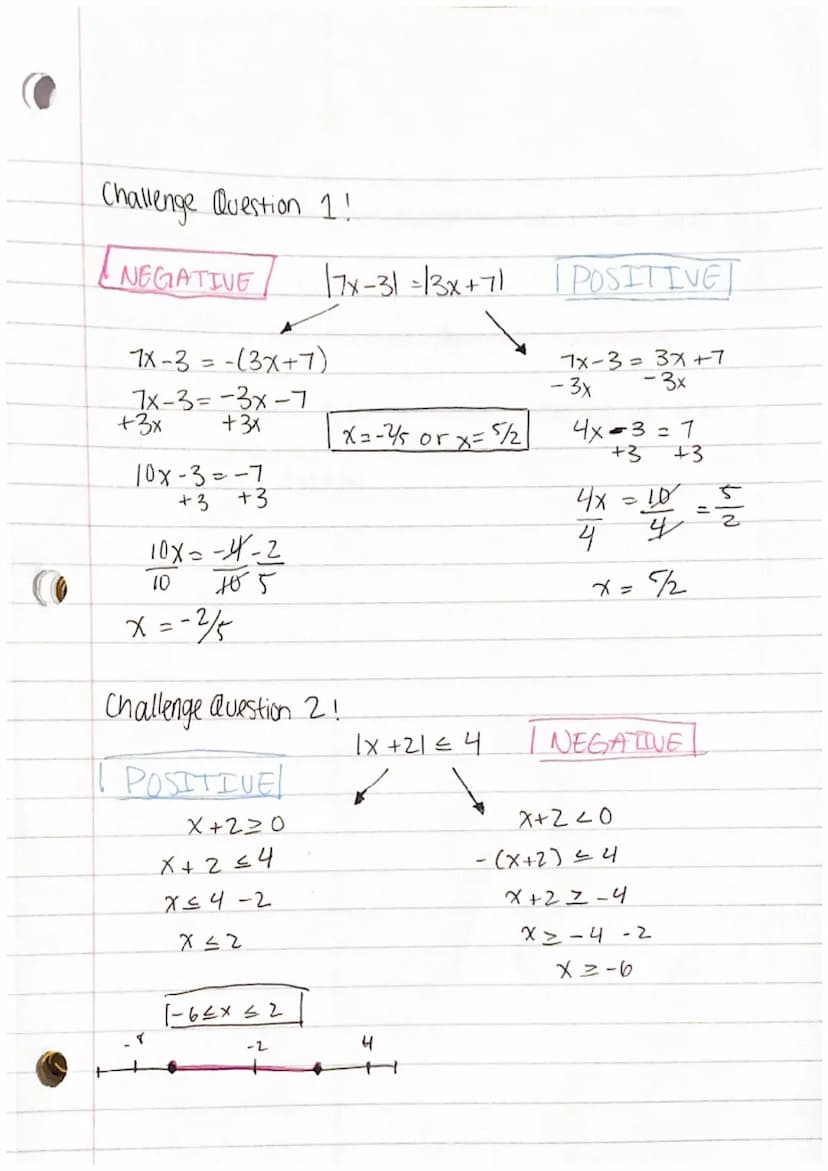 Challenge Question 1!
NEGATIVE |7x-3| = |3x+7| POSITIVE
7x-3 = -(3x+7)
7x-3 = -3x-7
+3x +3x
10x-3 = -7
+3 +3
10x = -4 -2
10 10 5
x = -2/5
x = -2/5 or x = 5/2
7x-3 = 3x+7
-3x -3x
4x-3 = 7
+3 +3
4x = 10 = 5
4 4 2
x = 5/2
Challenge Question 2!
|x+2| ≤ 4
POSITIVE
x+2 ≥ 0
x+2 ≤ 4
x ≤ 4 -2
x ≤ 2
NEGATIVE
x+2 < 0
-(x+2) ≤ 4
x+2 ≥ -4
x ≥ -4 -2
x ≥ -6
-6 ≤ x ≤ 2
-8 -2 4